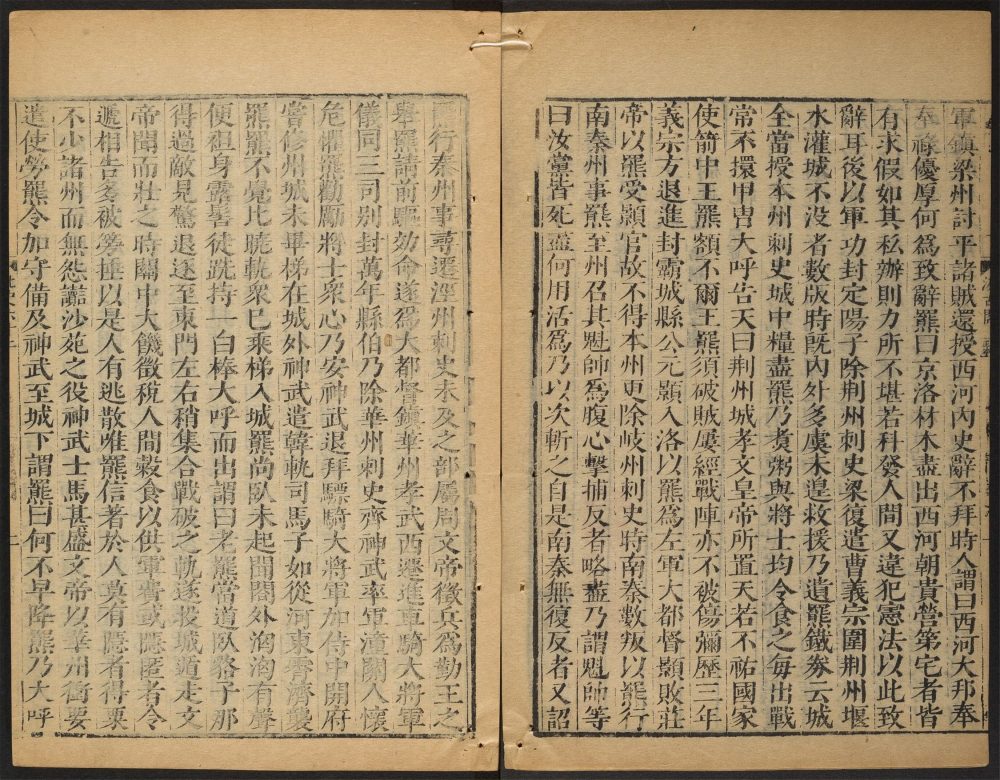 軍鎮梁州討平諸賊還授西河內史辭不拜時人謂曰西河大邦奉
奉祿優厚何爲致辭羆曰京洛材木盡出西河朝貴營第宅者皆
有求假如其私辦則力所不堪若科發人間又違犯憲法以此致
辭耳後以軍功封定陽子除荆州刺史梁復遣曹義宗圍荆州堰
水灌城不没者數版時既內外多虞未遑救援乃遺羆鐵券云城
全當授本州刺史城中糧盡羆乃煮粥與將士均分食之每出戰
常不擐甲胄大呼告天曰荆州城孝文皇帝所置天若不祐國家
使箭中王羆額不爾王羆須破賊屢經戰陣亦不被傷彌歷三年
義宗方退進封霸城縣公元顥入洛以羆爲左軍大都督顥敗莊
帝以羆受顥官故不得本州更除岐州刺史時南秦數叛以羆行
南秦州事羆至州召其魁帥爲腹心擊捕反者略盡乃謂魁帥等
曰汝黨皆死盡何用活爲乃以次斬之自是南秦無復反者又詔
羆行秦州事尋遷涇州刺史未及之部屬周文帝徵兵爲勤王之
舉羆請前驅効命遂爲大都督鎮華州孝武西遷進車騎大將軍
儀同三司别封萬年縣伯乃除華州刺史齊神武率軍潼關人懷
危懼羆勸勵將士衆心乃安神武退拜驃騎大將軍加侍中開府
嘗修州城未畢梯在城外神武遣韓軌司馬子如從河東宵濟襲
羆羆不覺比曉軌衆已乘梯入城羆尚臥未起聞閤外洶洶有聲
便袒身露髻徒跣持一白棒大呼而出謂曰老羆當道臥貉子那
得過敵見驚退逐至東門左右稍集合戰破之軌遂投城遁走文
帝聞而壯之時關中大饑徵税人間穀食以供軍費或隱匿者令
遞相告多被篣捶以是人有逃散唯羆信著於人莫有隱者得粟
不少諸州而無怨讟沙苑之役神武士馬甚盛文帝以華州衝要
遣使勞羆令加守備及神武至城下謂羆曰何不早降羆乃大呼